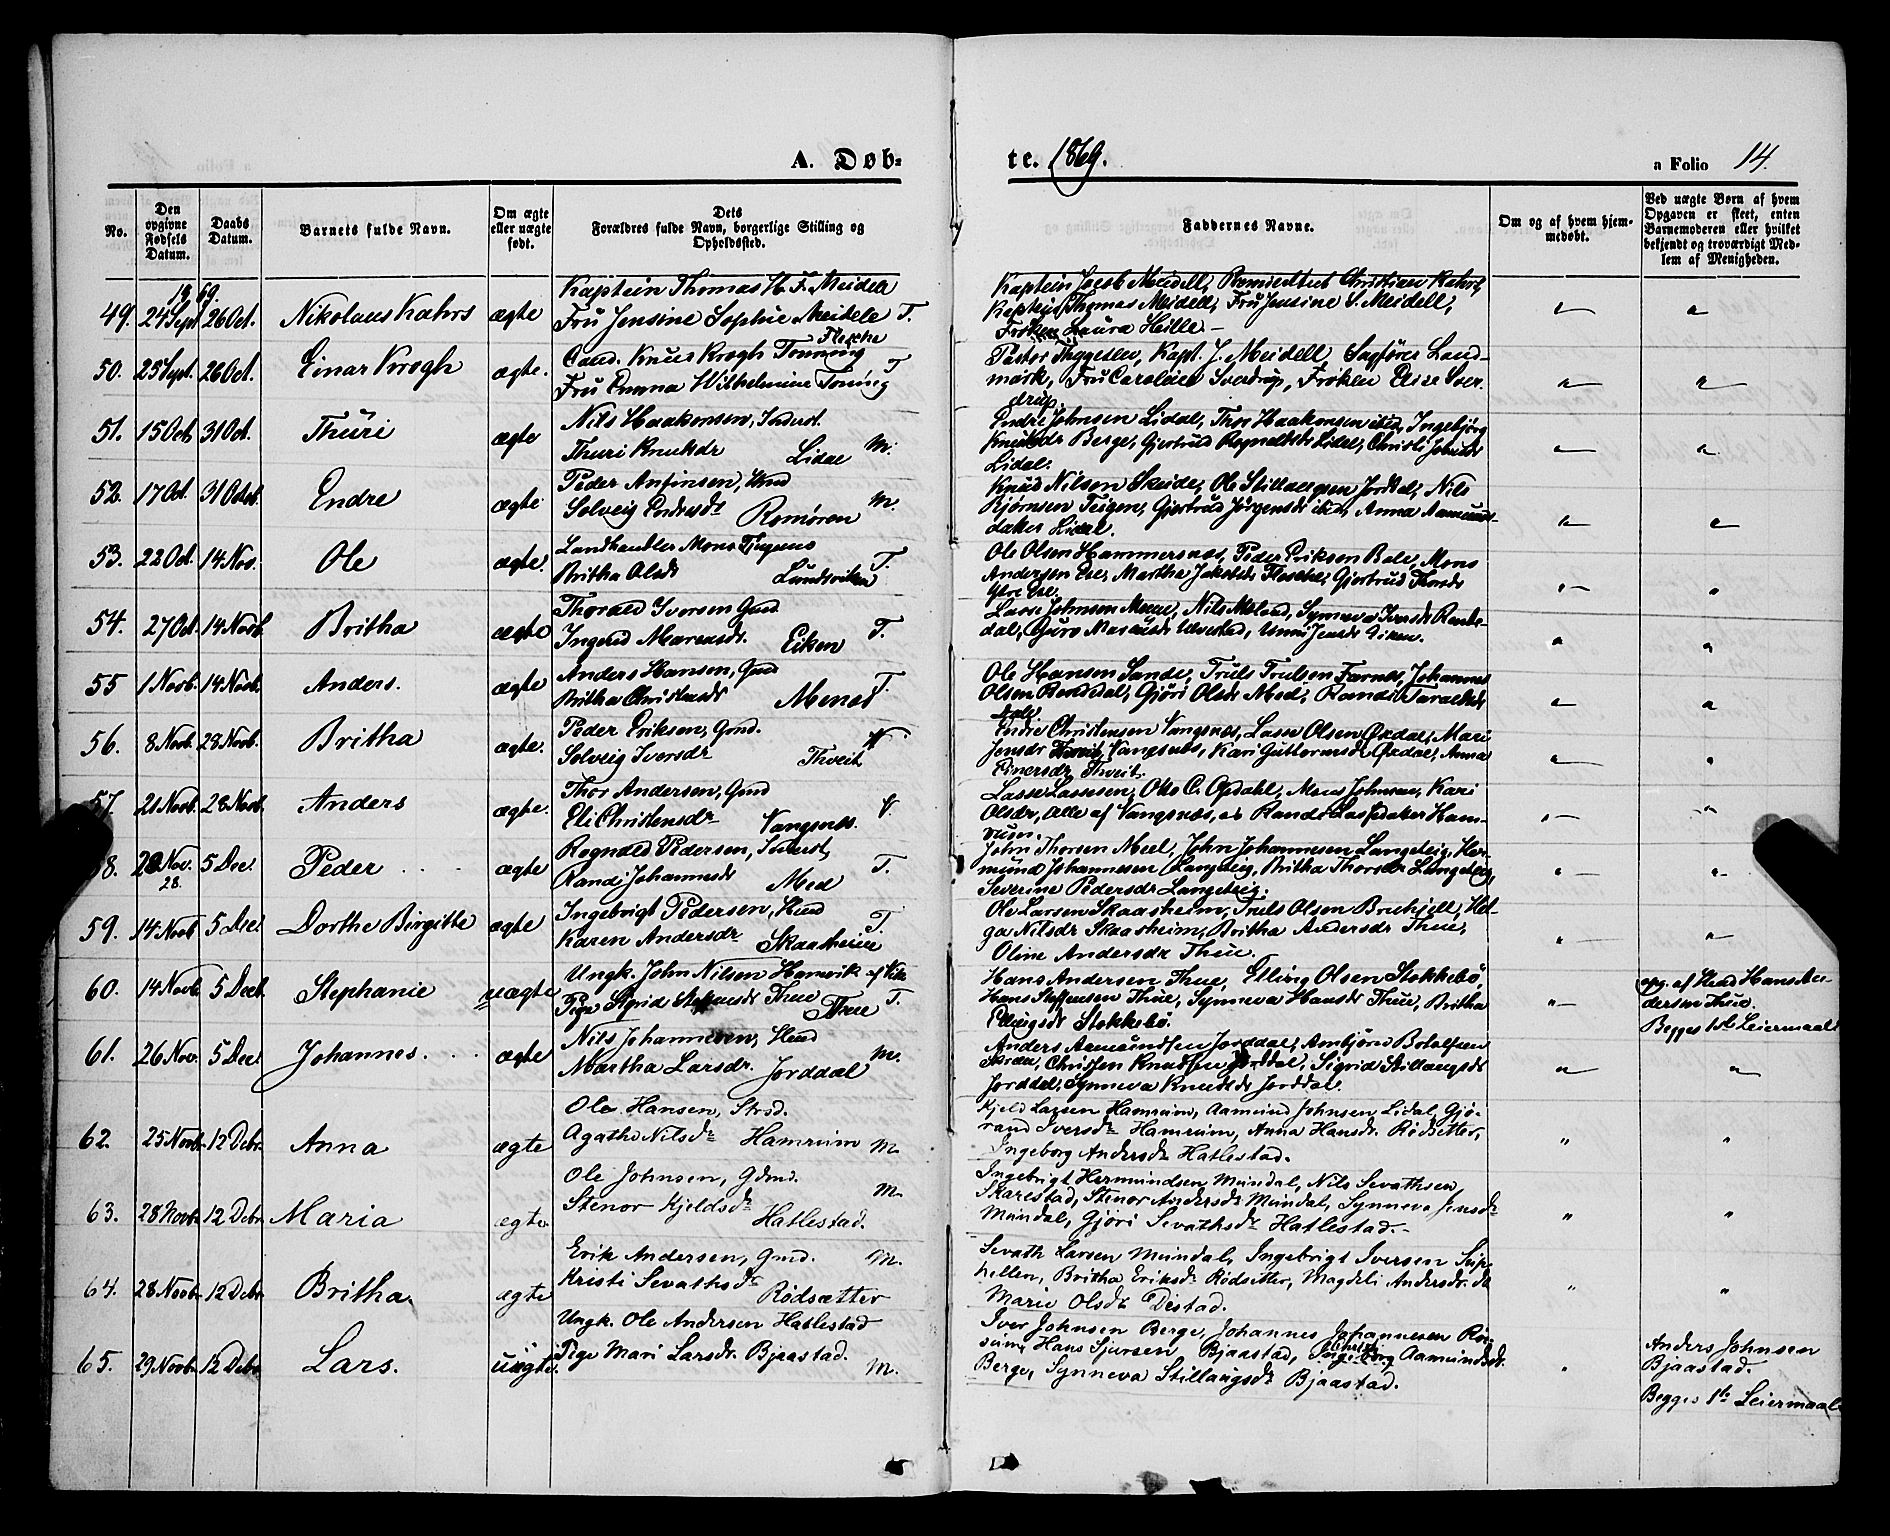 A. Døb=
te. 1869.
a Folio 14.
No.
Den opgivne Fødsels Datum.
Daabs Datum.
Barnets fulde Navn.
Om ægte eller uægte født.
Dets Forældres fulde Navn, borgerlige Stilling og Opholdssted.
Faddernes Navne.
Om og af hvem hjem=
medøbt.
Ved uægte Børn af hvem
Opgaven er skeet, enten
Barnemoderen eller hvilket
bekjendt og troværdigt Med=
lem af Menigheden.
1869.
49. 24 Sept. 26 Oct. Nikolaus Kahrs ægte
Kaptein Thomas H. F. Meidell
Fru Jensine Sophie T.
Kaptein Jacob Meidell, Christian Kahrs,
Thomas Meidell, Fru Jensine S. Meidell,
Frøken Laura Hille –
50. 25 Sept. 26 Oct. Einar Krogh ægte.
Cand. Krogh Tonning
Fru Emma Wilhelmine Toning T
Pastor Thygesen, Kapt. J. Meidell, Sagfører Land-
mark, Fru Caroline Sverdrup, Frøken Elise Sver-
drup.
51. 15 Oct. 31 Oct. Thuri ægte
Nils Haakonsen, Inderst
Thuri Knutsdr Lidal M.
Endre Johnsen Lidal, Thor Haakonsen ibid, Ingebjørg
Knutsdr Berge, Gjertrud Lidal, Christi
Lidal.
52. 17 Oct. 31 Octob. Endre ægte
Peder Anfinsen, Hmd
Solveig Endresdr Romøren M.
Knud Nilsen Skeide, Ole Stillaugsen Jorddal, Nils
Bjørnsen Teigen, Gjertrud Jørgensdr ibid, Anna Aamunds-
datter Lidal.
53. 22 Oct. 14 Nov. Ole ægte.
Landhandler Mons
Britha Olsdr Lundsviken T.
Ole Olsen Hammersnes, Peder Eriksen Bale, Mons
Andersen Ese, Martha Jakobsdr Flesche, Gjertrud
Ytre Ese.
54. 27 Oct. 14 Novb. Britha ægte
Thorald Iversen Gmd
Ingerid Eiken T.
Lasse Johnsen Menes, Nils Ulvestad, Synneva Iversdr Rom-
dal, Guro Ulvestad, Unni Jensdr Eiken.
55 1 Novb. 14 Novb. Anders. ægte
Anders Hansen, Gmd
Britha Christensdr Menes T.
Ole Hansen Sande, Truls Trulsen Farnes, Johannes
Olsen Romedal, Gjøri Olsdr Med, Randi Taraldsdr
56. 8 Novb. 28 Novb. Britha ægte.
Peder Eriksen, Gmd.
Solveig Iversdr Thveit V
Endre Christensen Vangsnes, Lasse Olsen Opdal, Mari
Jensdr Vangsnes, Kari Guttormsdr Opdal, Anna
Einersdr Thveit.
57. 21 Novb. 28 Novb. Anders ægte.
Thor Andersen, Gmd
Eli Christensdr Vangsnes. V.
Lasse Lassesen, Ole C. Opdahl, Mons Johnsen, Kari
Olsdr, Alle af Vangsnes, og Randi Lassedatter Ham-
rum.
58. 20 Nov. 5 Dec. Peder ægte
28.
Rognald Pedersen, Inderst,
Randi Johannesdr Med T.
John Thorsen Meel, John Johannesen Langeteig, Her-
mund Johannesen Langeteig, Britha Thorsdr Langeteig,
Severine Pedersdr Langeteig.
59. 14 Novb 5 Dec. Dorthe Birgitte ægte
Ingebrigt Pedersen, Hmd
Karen Andersdr Skaasheim T.
Ole Larsen Skaasheim, Truls Olsen Brekjell, Hel-
ga Nilsdr Skaasheim, Britha Andersdr Thue,
Oline Andersdr Thue.
60. 14 Novb 5 Decb. Stephanie uægte
Ungk. John Nilsen Hamrik af Vik
Pige Sigrid Steffensdr Thue Thue T.
Hans Andersen Thue, Elling Olsen Stokkebø,
Hans Steffensen Thue, Synneva Hansdr Thue, Britha
Ellingsdr Stokkebø.
opg. af Hmd Hans An-
dersen Thue.
Begges 1ste Leiermaal
61. 26 Nov. 5 Dec. Johannes. ægte
Nils Johannesen, Hmd
Martha Larsdr. Jorddal M.
Anders Aamundsen Jorddal, Arnbjørn Botolfsen
Skeide, Christen Knudsen Jorddal, Sigrid Stillaugsdr
Jorddal, Synneva Knudsdr Jorddal.
62. 25 Novb. 12 Debr. Anna ægte
Ole Hansen, Strsd.
Agathe Nilsdr Hamrum M.
Kjeld Larsen Hamrum, Aamund Johnsen Lidal, Gjø-
rand Iversdr Hamrum, Anna Hansdr. Rødsetter,
Ingeborg Andersdr Hatlestad.
" "
63. 28 Novb. 12 Debr. Maria ægte
Ole Johnsen, Gdmd.
Stenor Kjeldsdr Hatlestad. M.
Ingebrigt Hermundsen Mundal, Nils Sevathsen
Skarestad, Stenor Andersdr Mundal, Synneva Jensdr
Mundal, Gjøri Sevathsdr Hatlestad. –
" "
64. 28 Novb. 12 Debr. Britha. ægte
Erik Andersen, Gmd. M.
Kristi Sevathsdr Rødsætter
Sevath Larsen Mundal, Ingebrigt Iversen Sup-
hellen, Britha Eriksdr Rødsetter, Magdeli Andersdr. ds
Marie Olsdr Distad.
" "
65. 29 Novb. 12 Debr. Lars. uægte.
Ungk. Ole Andersen Hatlestad
Pige Mari Larsdr. Bjaastad. M.
Iver Johnsen Berge, Johannes Johannesen Rom-
sum, Hans Sjursen Bjaastad, Aamundsdr.
Berge, Synneva Stillaugsdr Bjaastad.
"
Anders Johnsen
Bjaastad.
Begges 1ste Leiermaal